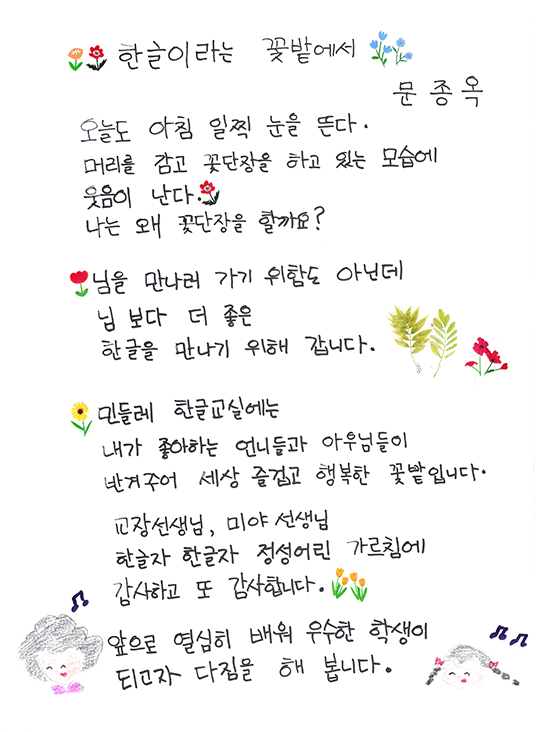 한글이라는 꽃밭에서
문종옥
오늘도 아침 일찍 눈을 뜬다.
머리를 감고 꽃단장을 하고 있는 모습에
웃음이 난다.
나는 왜 꽃단장을 할까요?
님을 만나러 가기 위함도 아닌데
님 보다 더 좋은
한글을 만나기 위해 갑니다.
민들레 한글교실에는
내가 좋아하는 언니들과 아우님들이
반겨주어 세상 즐겁고 행복한 꽃밭입니다.
교장선생님, 미야 선생님
한글자 한글자 정성어린 가르침에
감사하고 또 감사합니다.
앞으로 열심히 배워 우수한 학생이
되고자 다짐을 해 봅니다.